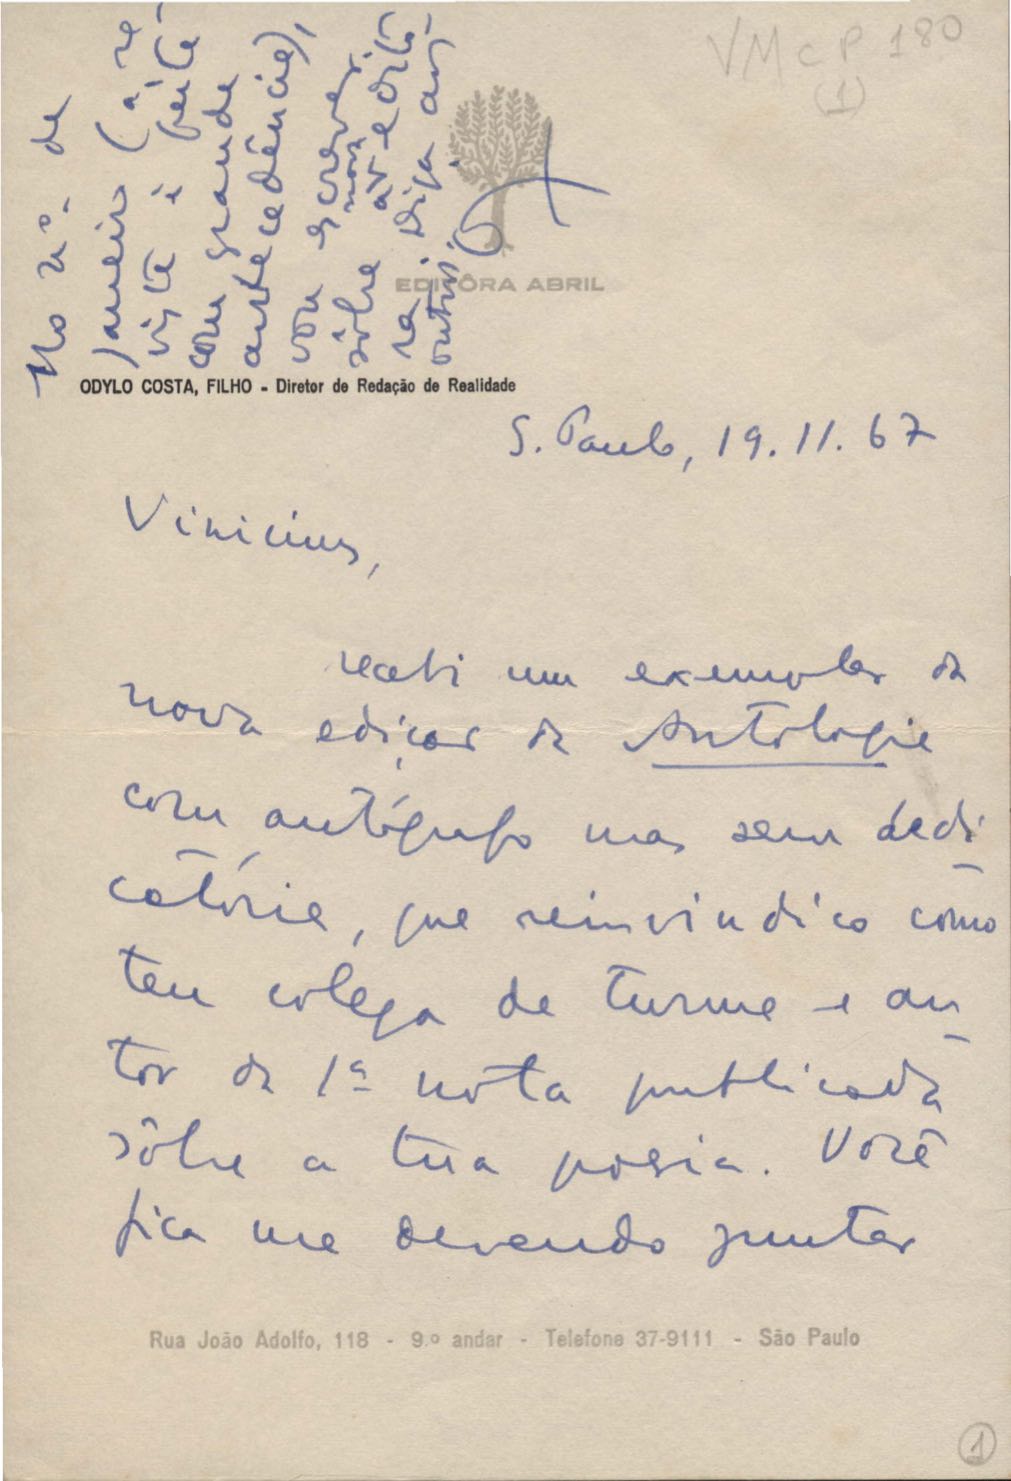 VMCP 180
(1)
No nº. de
janeiro (a re-
vista é feita
com grande
antecedência),
vou escrever
sôbre nova
edito-
ra. Diga aos
outros.
EDITÔRA ABRIL
ODYLO COSTA, FILHO - Diretor de Redação de Realidade
S. Paulo, 19.11.67
Vinicius,
recebi um exemplar da
nova edição da Antologia
com autógrafo mas sem dedi-
catória, que reinvindico como
teu colega de turma e au-
tor da 1ª nota publicada
sôbre a tua poesia. Você
fica me devendo juntar
Rua João Adolfo, 118 - 9.º andar - Telefone 37-9111 - São Paulo
1